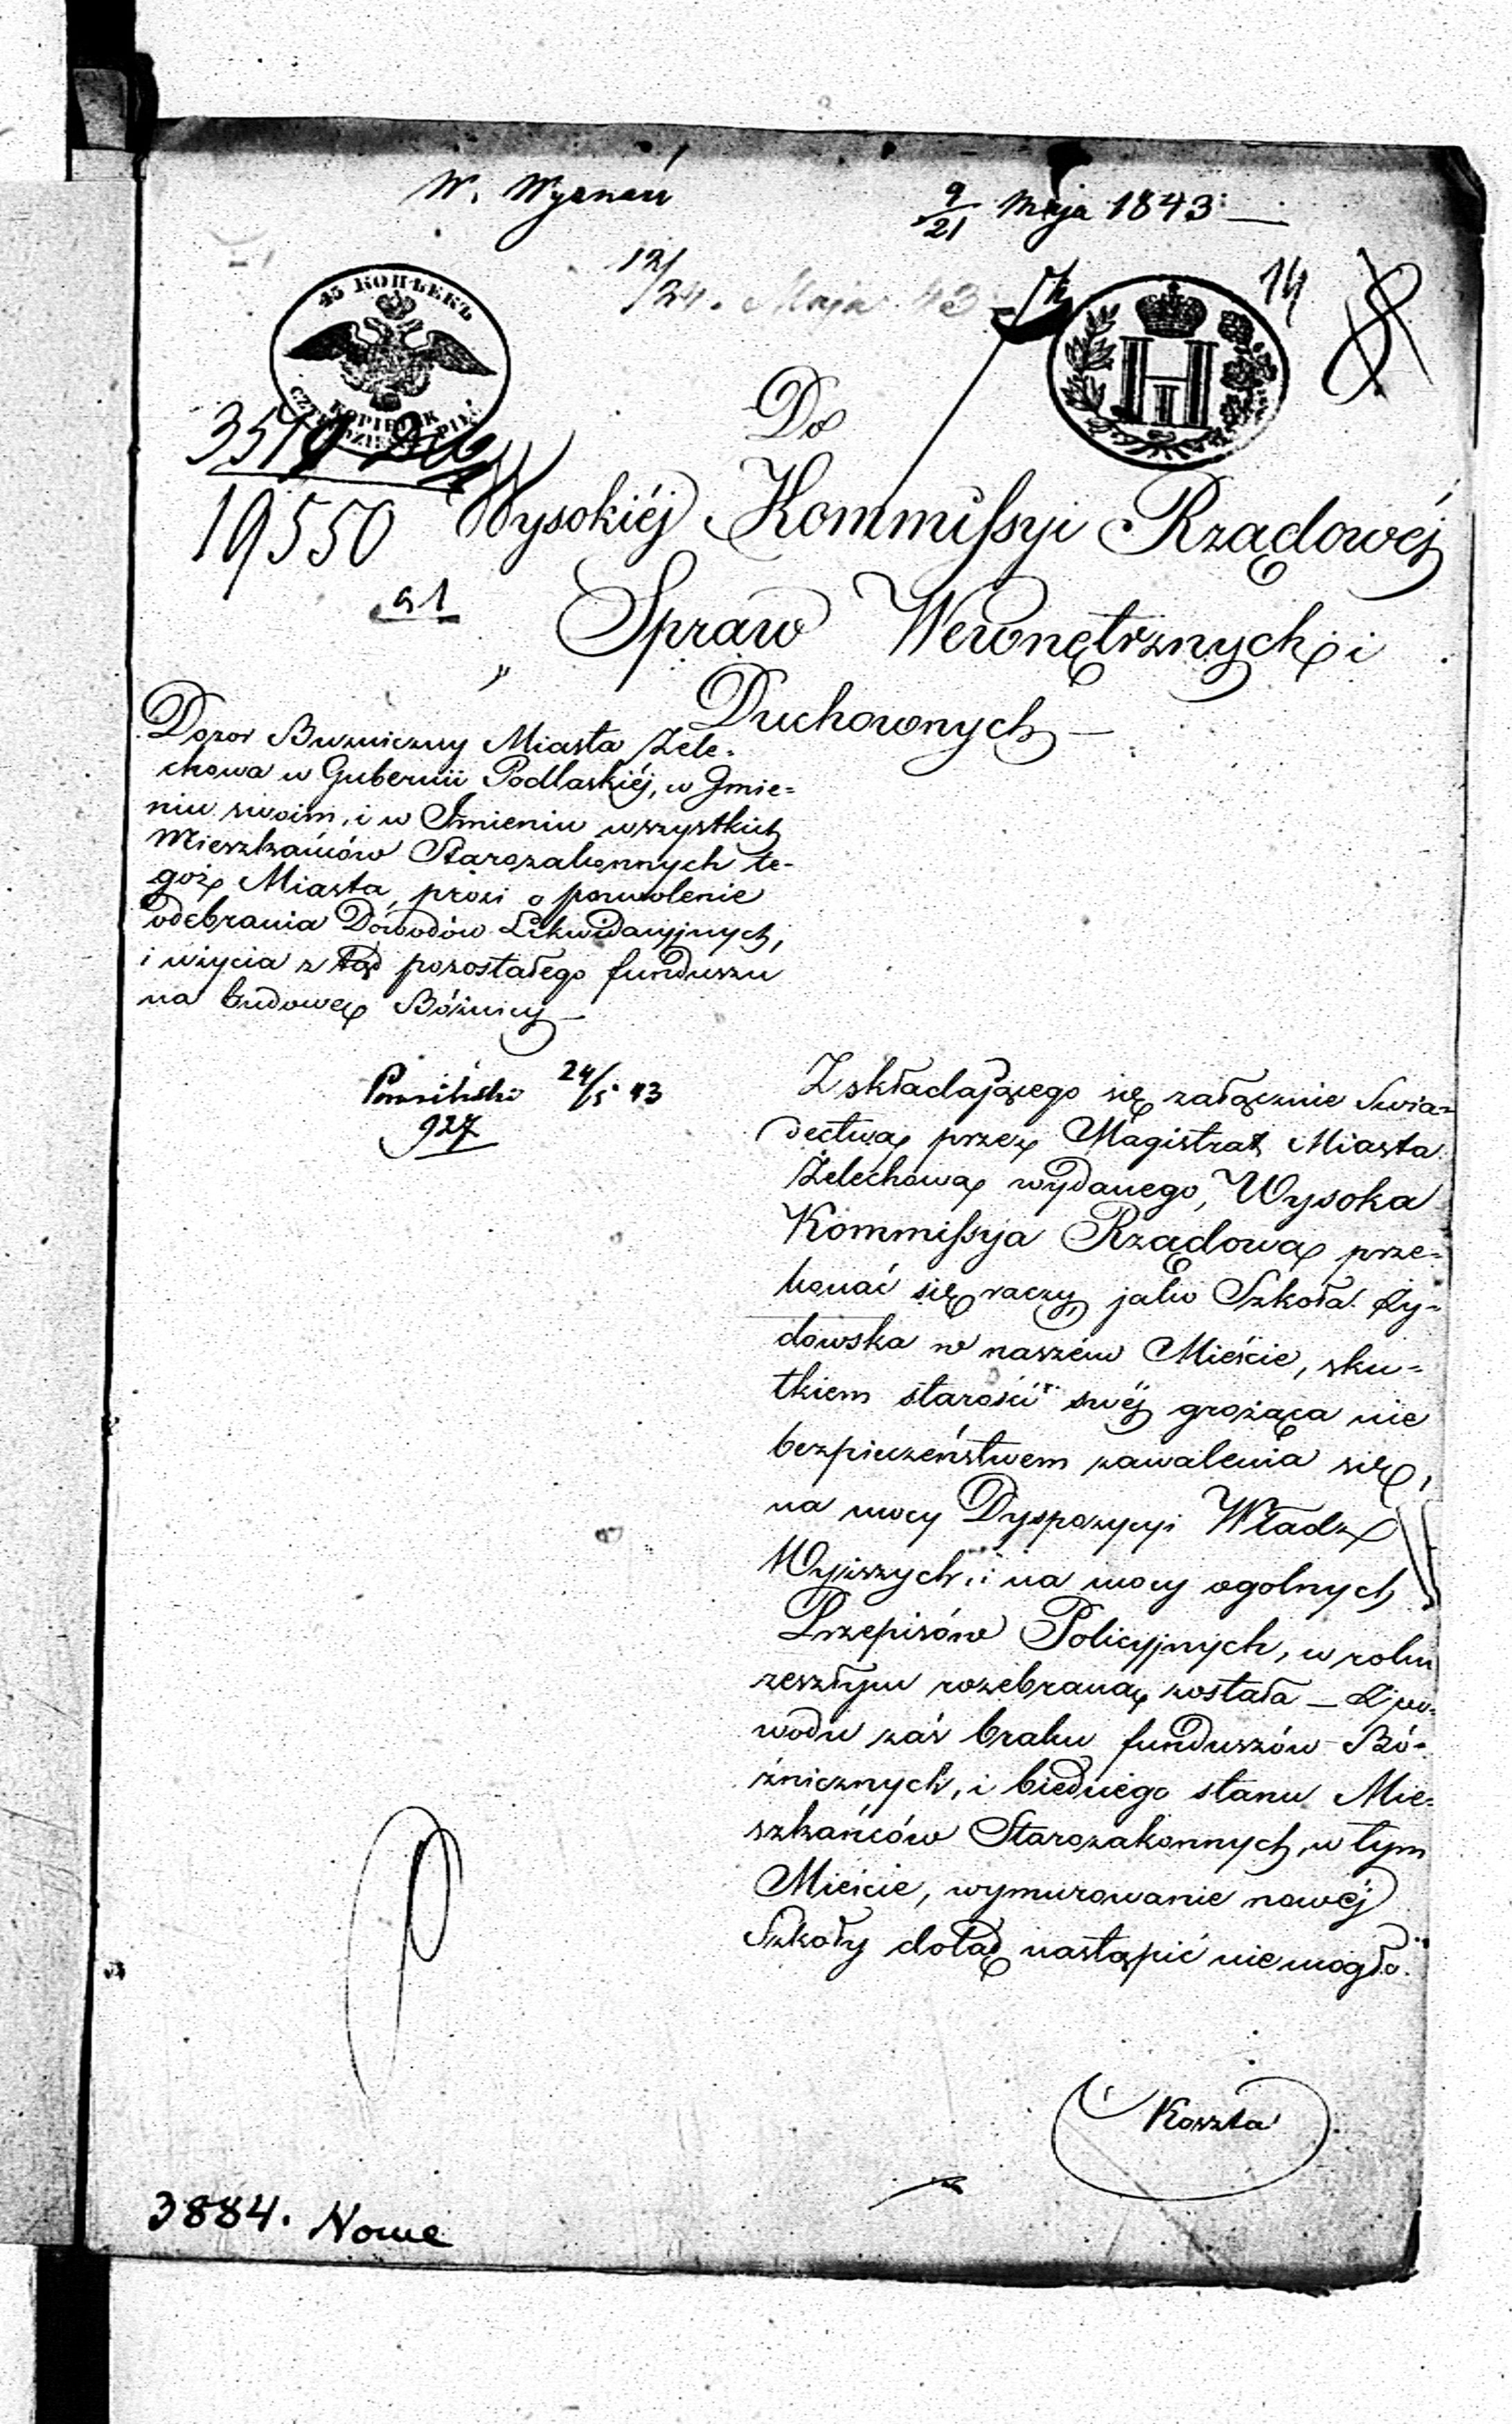 W. Wyznań
9/21 Maja 1843
12/24. Maja 43
14
45 КОПѢЕКЪ
KOPIEJEK
CZTERDZIEŚCI PIĘĆ
H
II
3549
19550
Do
Wysokiéj Kommissyi Rządowéj
Spraw Wewnętrznych i
Duchownych
Dozor Buzniczny Miasta Żele-
chowa w Gubernii Podlaskiéj, w Jmie=
niu swoim, i w Jmieniu wszystkich
Mieszkańców Starozakonnych te-
goż Miasta, prosi o pozwolenie
odebrania Dowodów Likwidacyjnych,
i użycia z tąd pozostałego funduszu
na budowę Bóżnicy
24/5 43
927
Z składającego się załącznie Swia=
dectwa przez Magistrat Miasta
Żelechowa wydanego, Wysoka
Kommissyja Rządowa prze=
konać się raczy, jako Szkoła Ży-
dowska w naszém Mieście, sku=
tkiem starości swéj grożąca nie
bezpieczeństwem zawalenia się,
na mocy Dyspozycyi Władz
Wyższych, i na mocy ogolnych
Przepisów Policyjnych, w roku
zeszłym rozebraną została — Z po=
wodu zaś braku funduszów Bó-
żnicznych, i biednego stanu Mie=
szkańców Starozakonnych, w tym
Mieście, wymurowanie nowéj
Szkoły dotąd nastąpić nie mogło.
Koszta
3884. Nowe